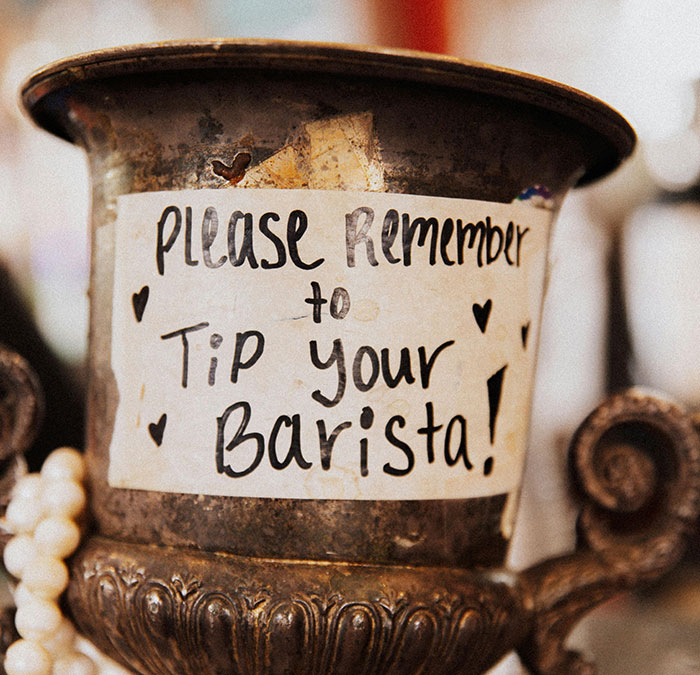 Please Remember
to
Tip your
Barista!